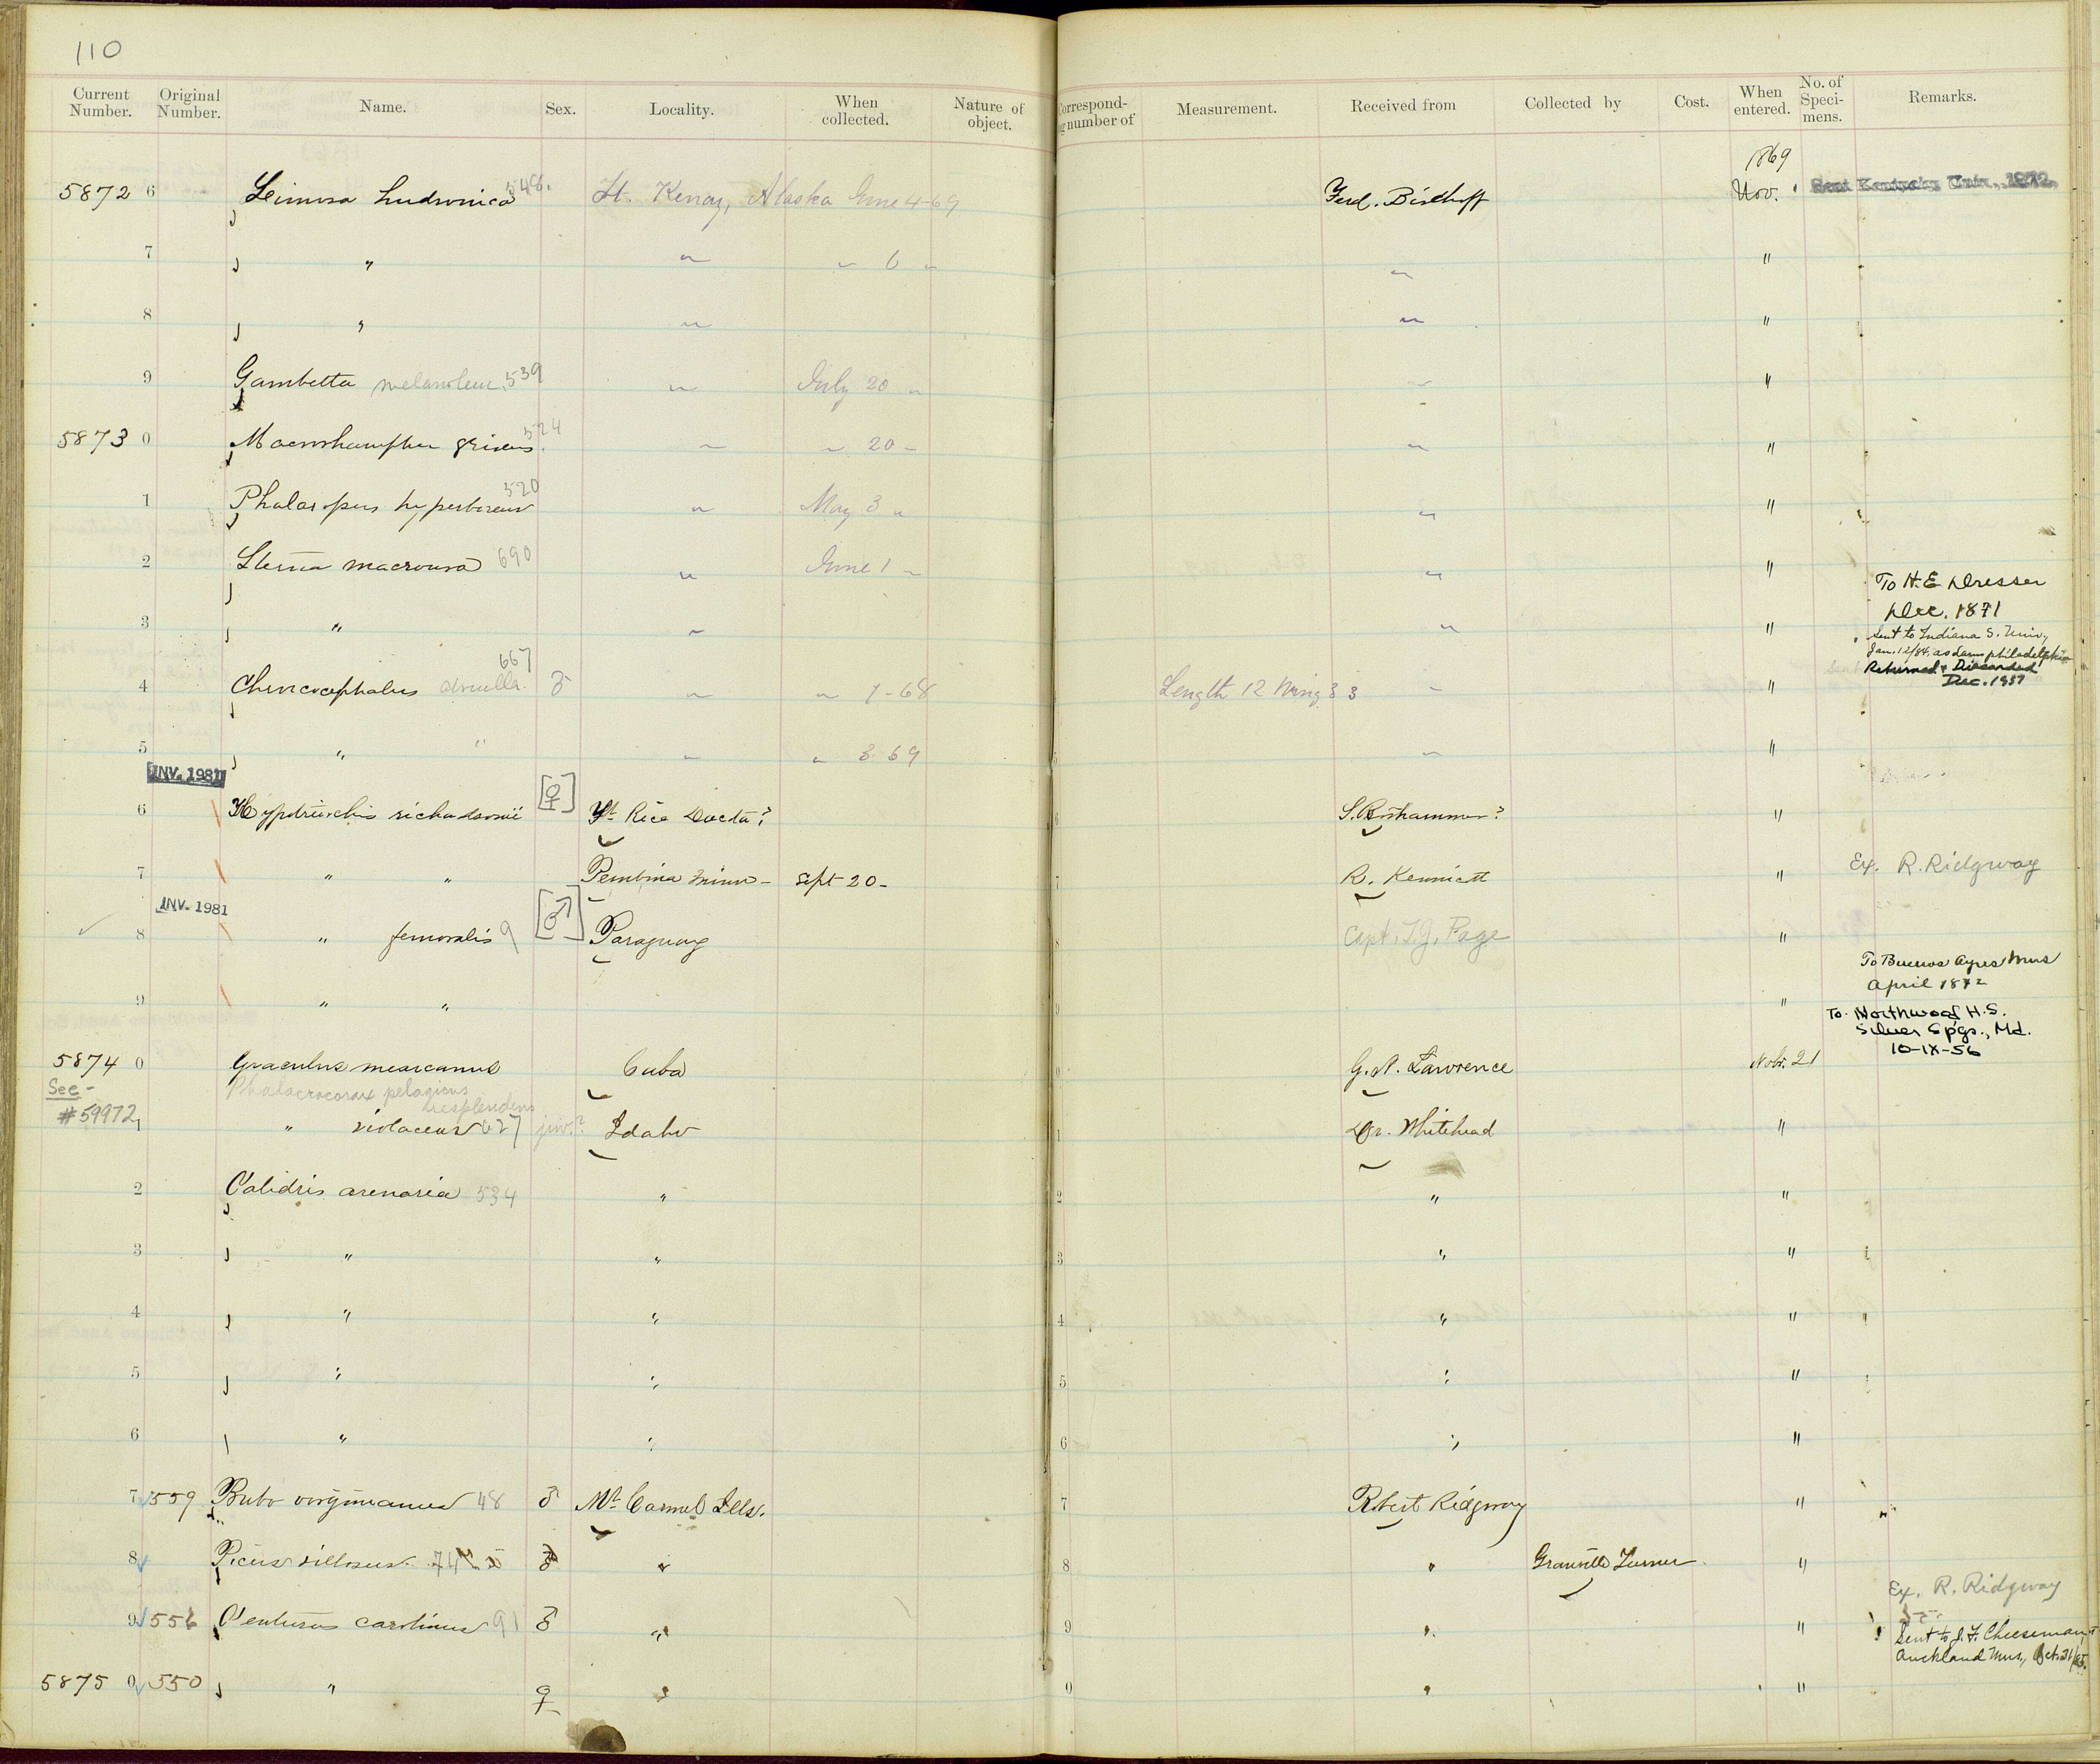 110
Current Number. Original Number. Name. Sex. Locality. When collected. Nature of object. Correspond- number of Measurement. Received from Collected by Cost. When entered. No. of Speci- mens. Remarks.
1869
5872 6 Limosa hudsonica 548. Ft. Kenay, Alaska June 4-69 Ferd. Bischoff Nov. Sent Kentucky Univ., 1872.
7 " " " 6 " " "
8 " " " "
9 Gambetta melanoleuc. 539 " July 20 " " "
5873 0 Macrorhamphus griseus 524 " " 20 " " "
1 Phalaropus hyperboreus 520 " May 3 " " "
2 Sterna macroura 690 " June 1 " " "
To H.E Dresser
Dec. 1871
3 " " " "
Sent to Indiana S. Univ,
Jan. 12/84, as
philadelphia
Returned & Discarded
Dec. 1937
4 Chroicocephalus 667 ♂ " " 7-68 Length 12 Wing 3 3 " "
5 " " " " 3 69 " "
INV. 1981
6 Hypotriorchis richardsonii [♀] Ft. Rice Dacota? "
7 " " Pembina Minn- Sept 20- R. Kennicott " Ex. R. Ridgway
INV. 1981
8 " femoralis 9 [♂] Paraguay Capt. T.J. Page "
To Buenos Ayres Mus
April 1872
9 " " "
To Northwood H.S.
Silver Spgs., Md.
10-IX-56
5874 0 Graculus mexicanus Cuba G. N. Lawrence Nov. 21
See
Phalacrocorax pelagicus
resplendens
#59972
1 " violaceus 627 juv.? Idaho Dr. Whitehead "
2 Calidris arenaria 534 " " "
3 " " " "
4 " " " "
5 " " " "
6 " " " "
7 559 Bubo virginianus 48 ♂ Mt Carmel Ills. Robert Ridgway "
8 Picus villosus 74 ♂ " " Granville Turner "
Ex. R. Ridgway
9 556 Centurus carolinus 91 ♂ " " "
Sent to J. F. Cheeseman,
Auckland Mus., Oct. 31/
5875 0 550 " ♀ " " "